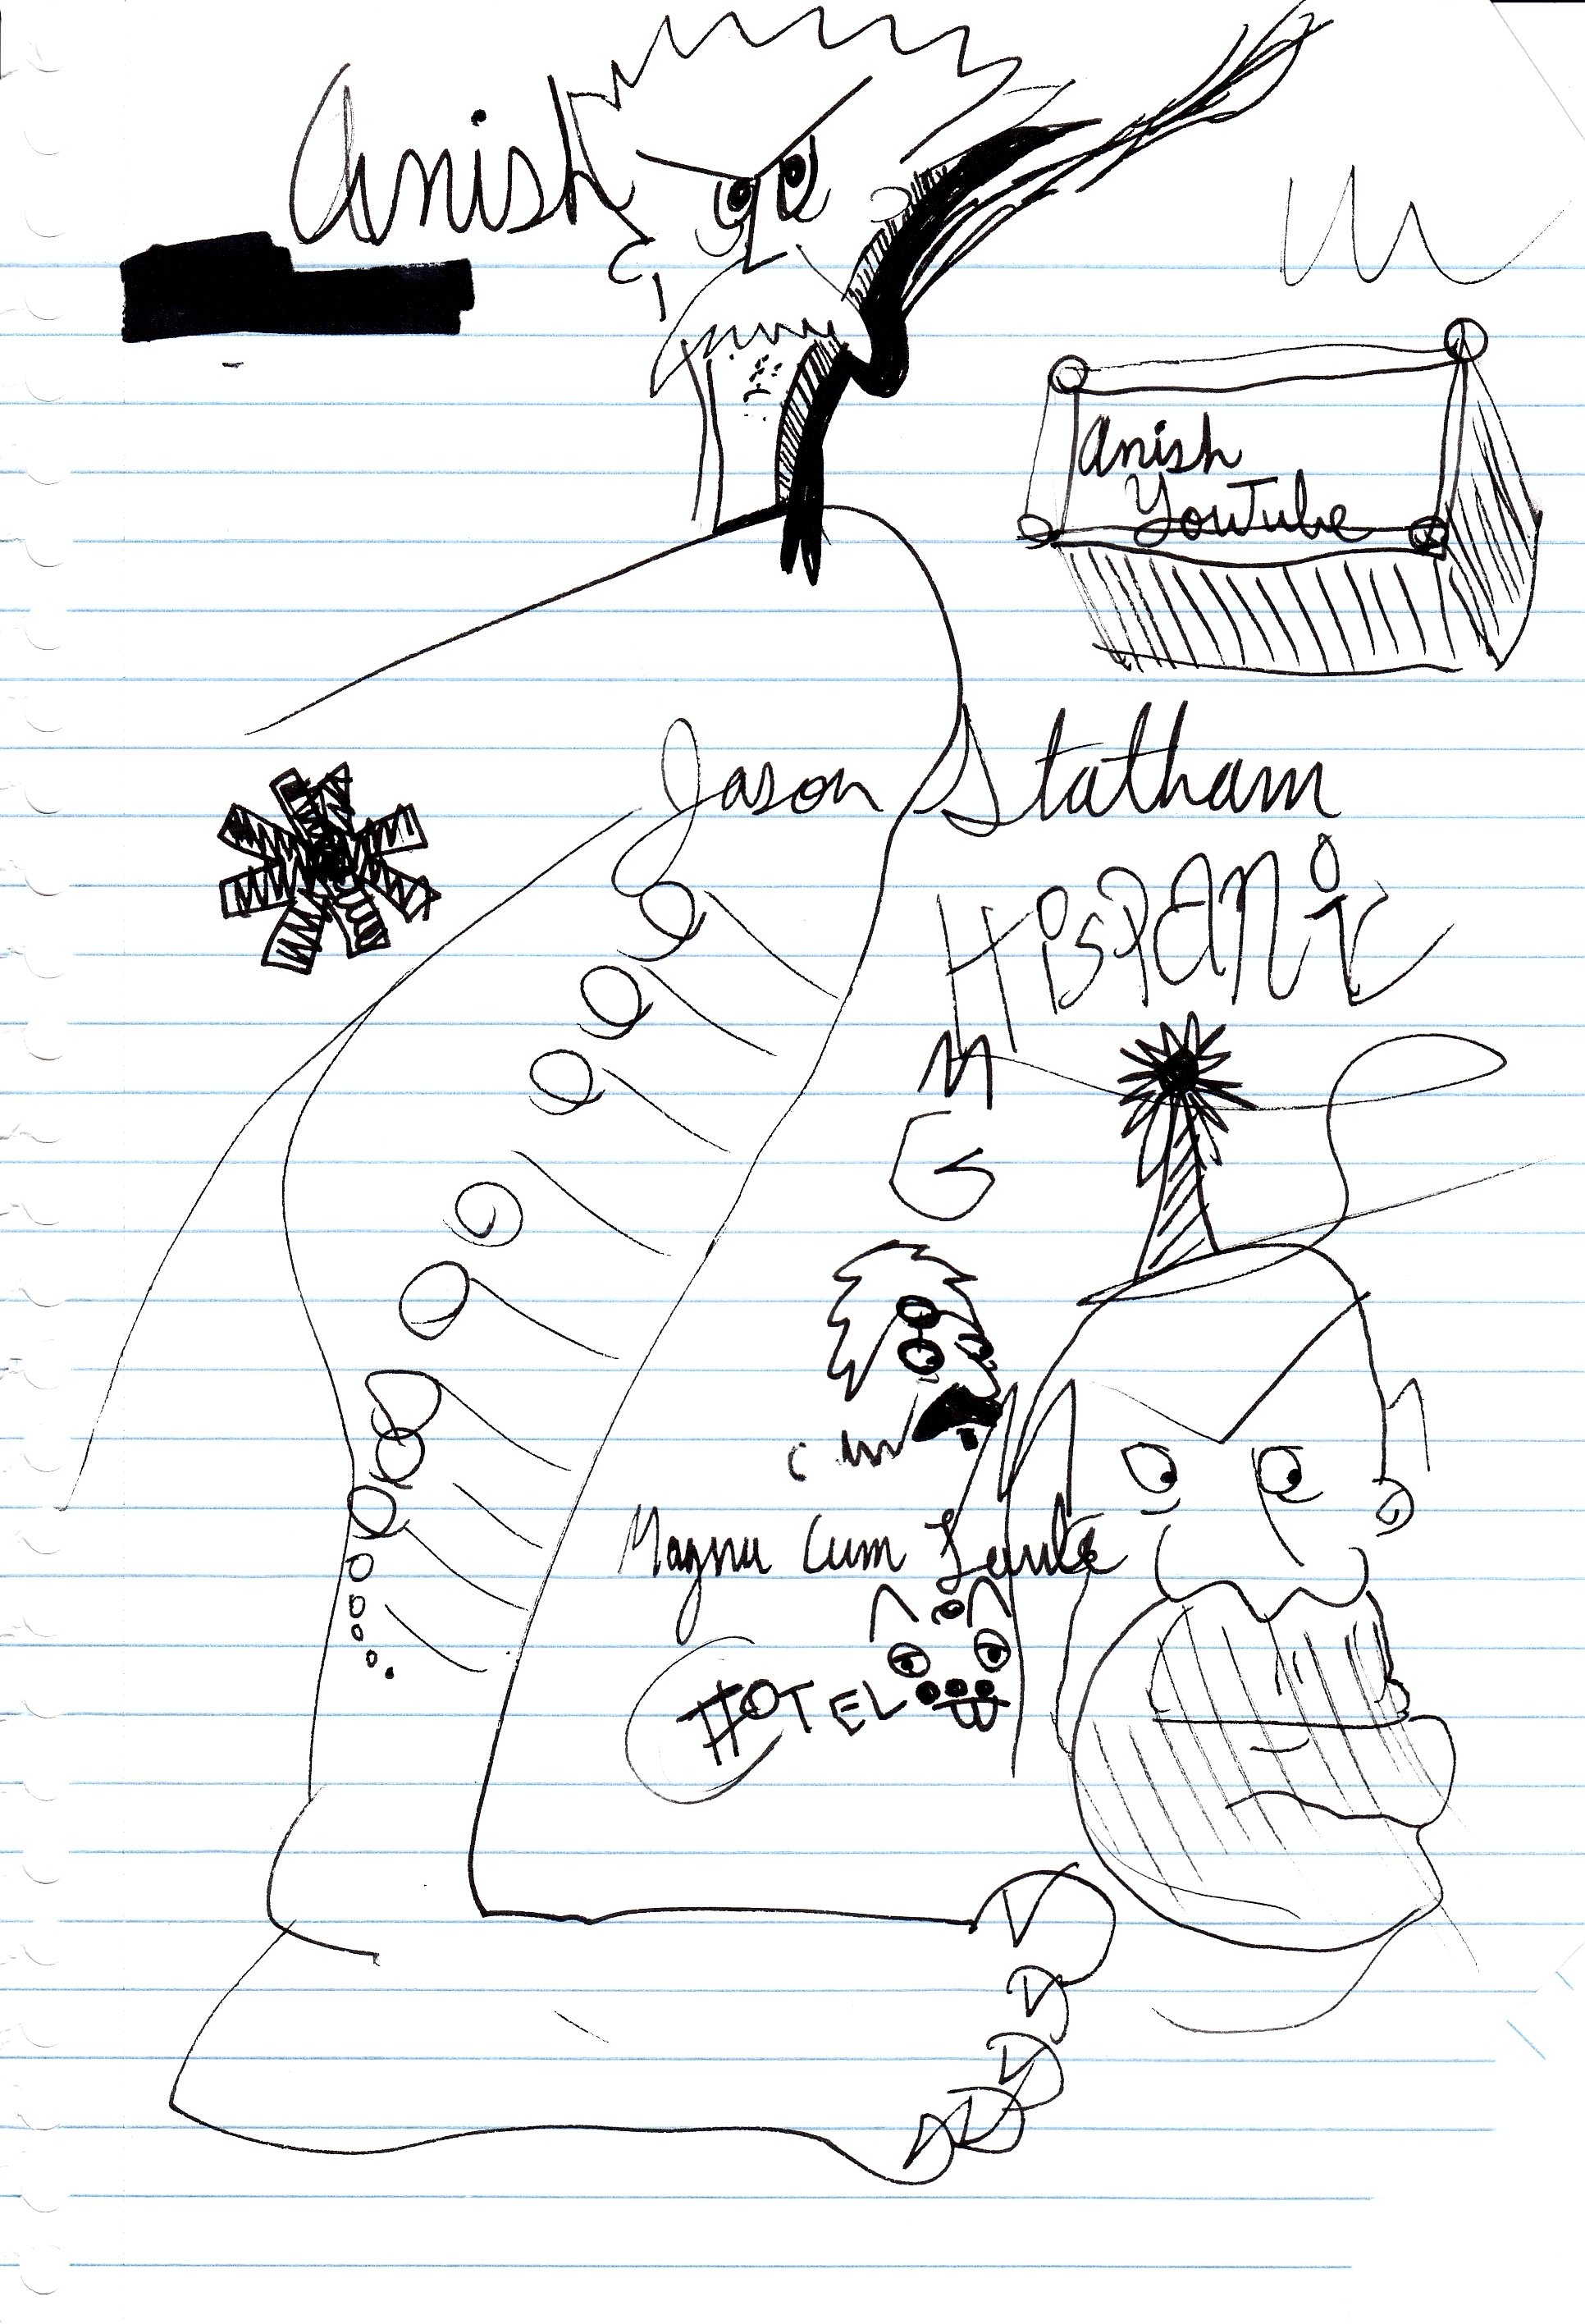 Anish
Anish
YouTube
Jason Statham
HiSPANiC
M
G
Magna Cum Laude
HOTEL